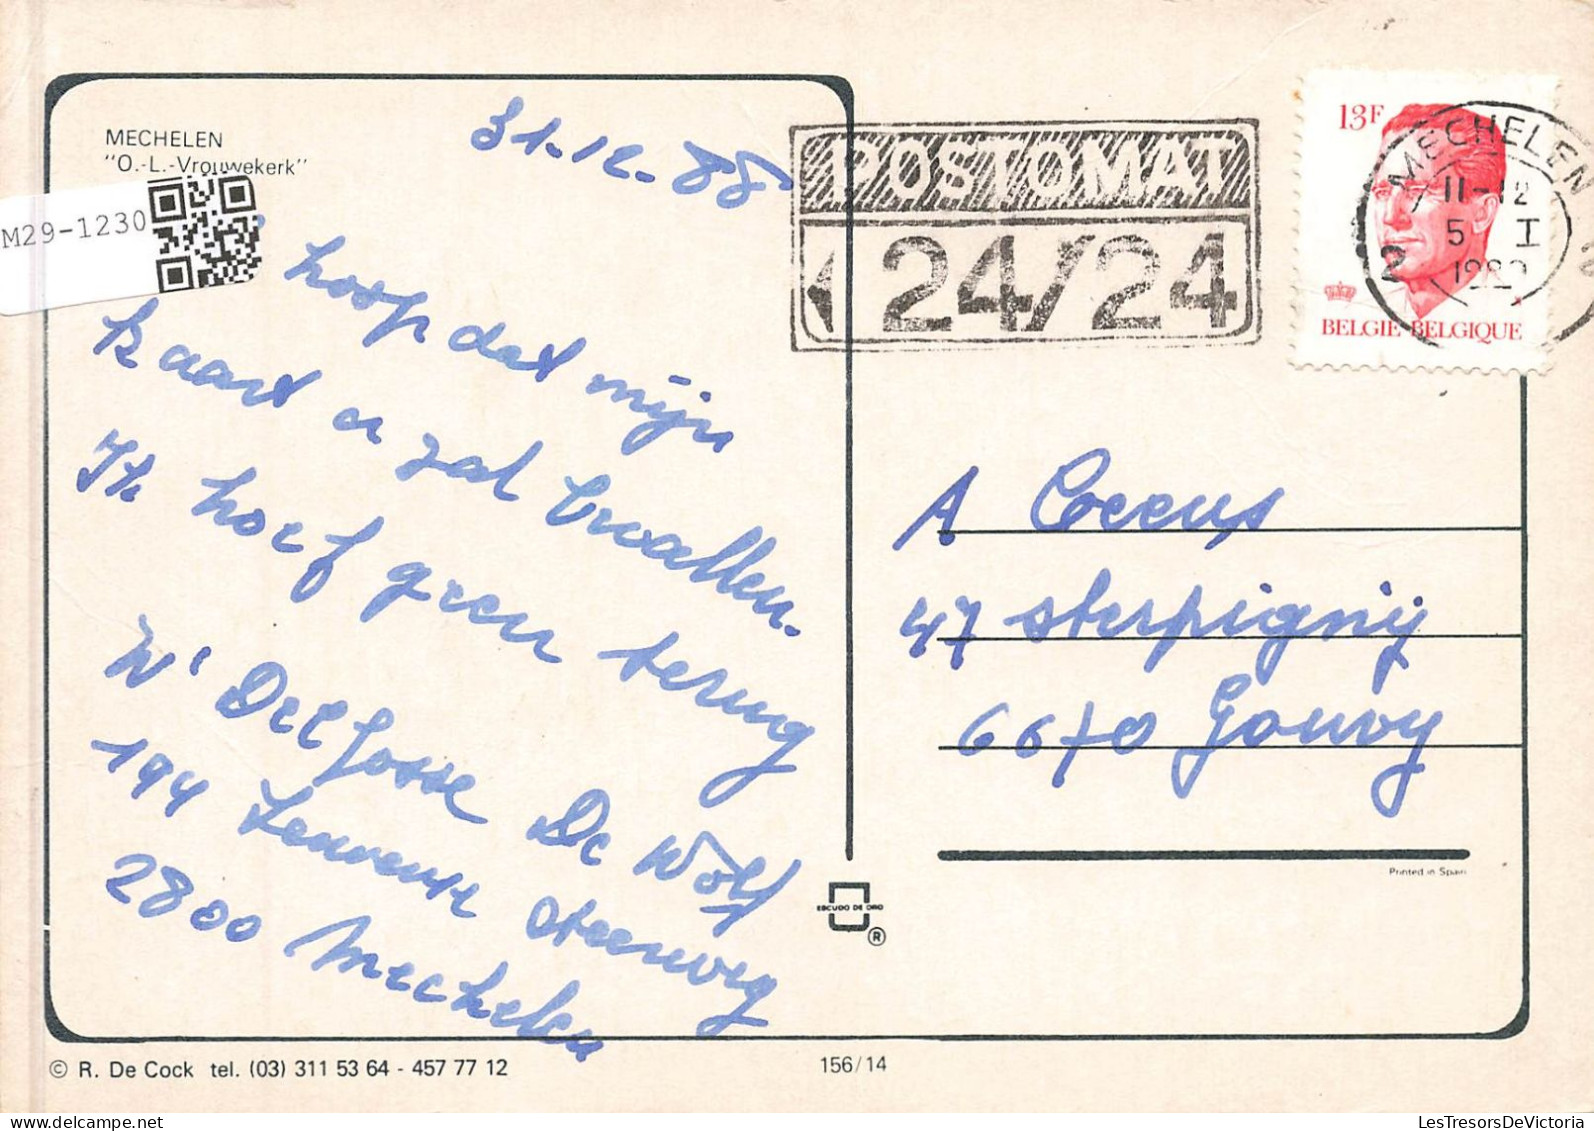 MECHELEN
"O.-L.-Vrouwekerk"
M29-1230
31-12-88
hoop dat mijn
kaart u zal bevallen.
Ik hoef geen terug
W' Delfosse De Wolf
194 Leuvense steenweg
2800 Mechelen
POSTOMAT
24/24
13F
BELGIE-BELGIQUE
MECHELEN
2 2
11-12
5 I
1989
A Ceeus
47 sterpigny
6670 Gouvy
Printed in Spain
ESCUDO DE ORO
®
© R. De Cock tel. (03) 311 53 64 - 457 77 12
156/14
LesTresorsDeVictoria